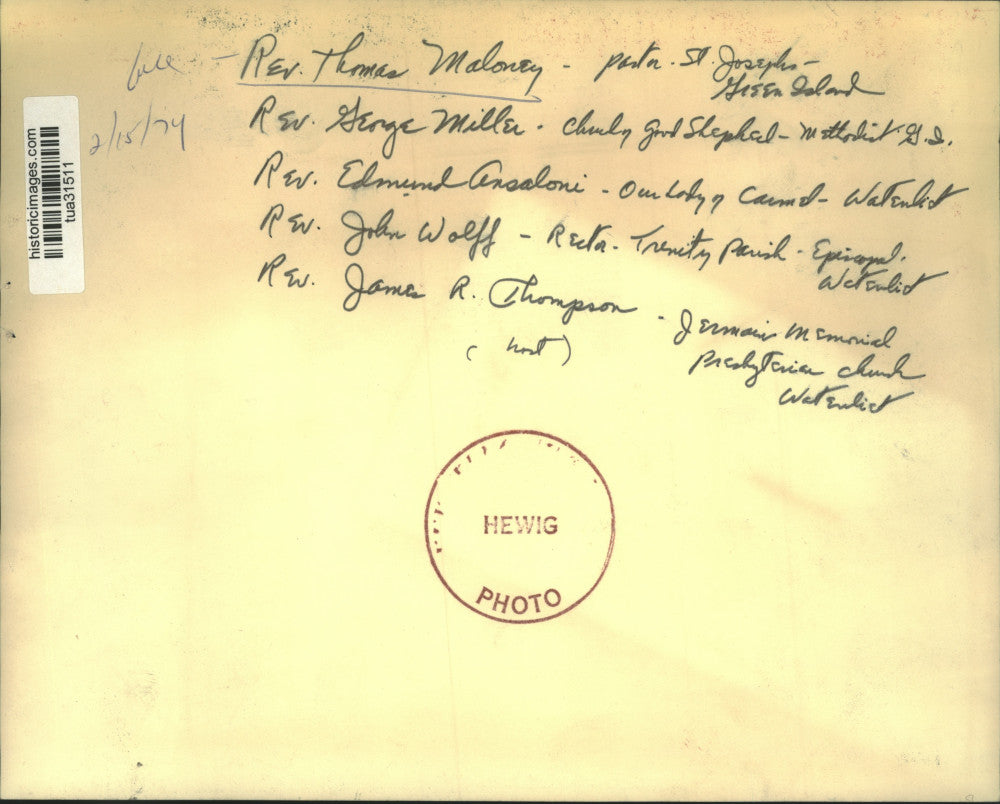 file - Rev. Thomas Maloney - pastor. St. Josephs -
Green Island
2/15/74
Rev. George Miller - Church of Good Shepherd - Methodist. G.I.
Rev. Edmund Ansaloni - Our Lady of Carmel - Watervliet
Rev. John Wolff - Rector - Trinity Parish - Episcopal.
Watervliet
Rev. James R. Thompson - Jermain Memorial
(host)
Presbyterian church
Watervliet
historicimages.com
tua31511
HEWIG
PHOTO